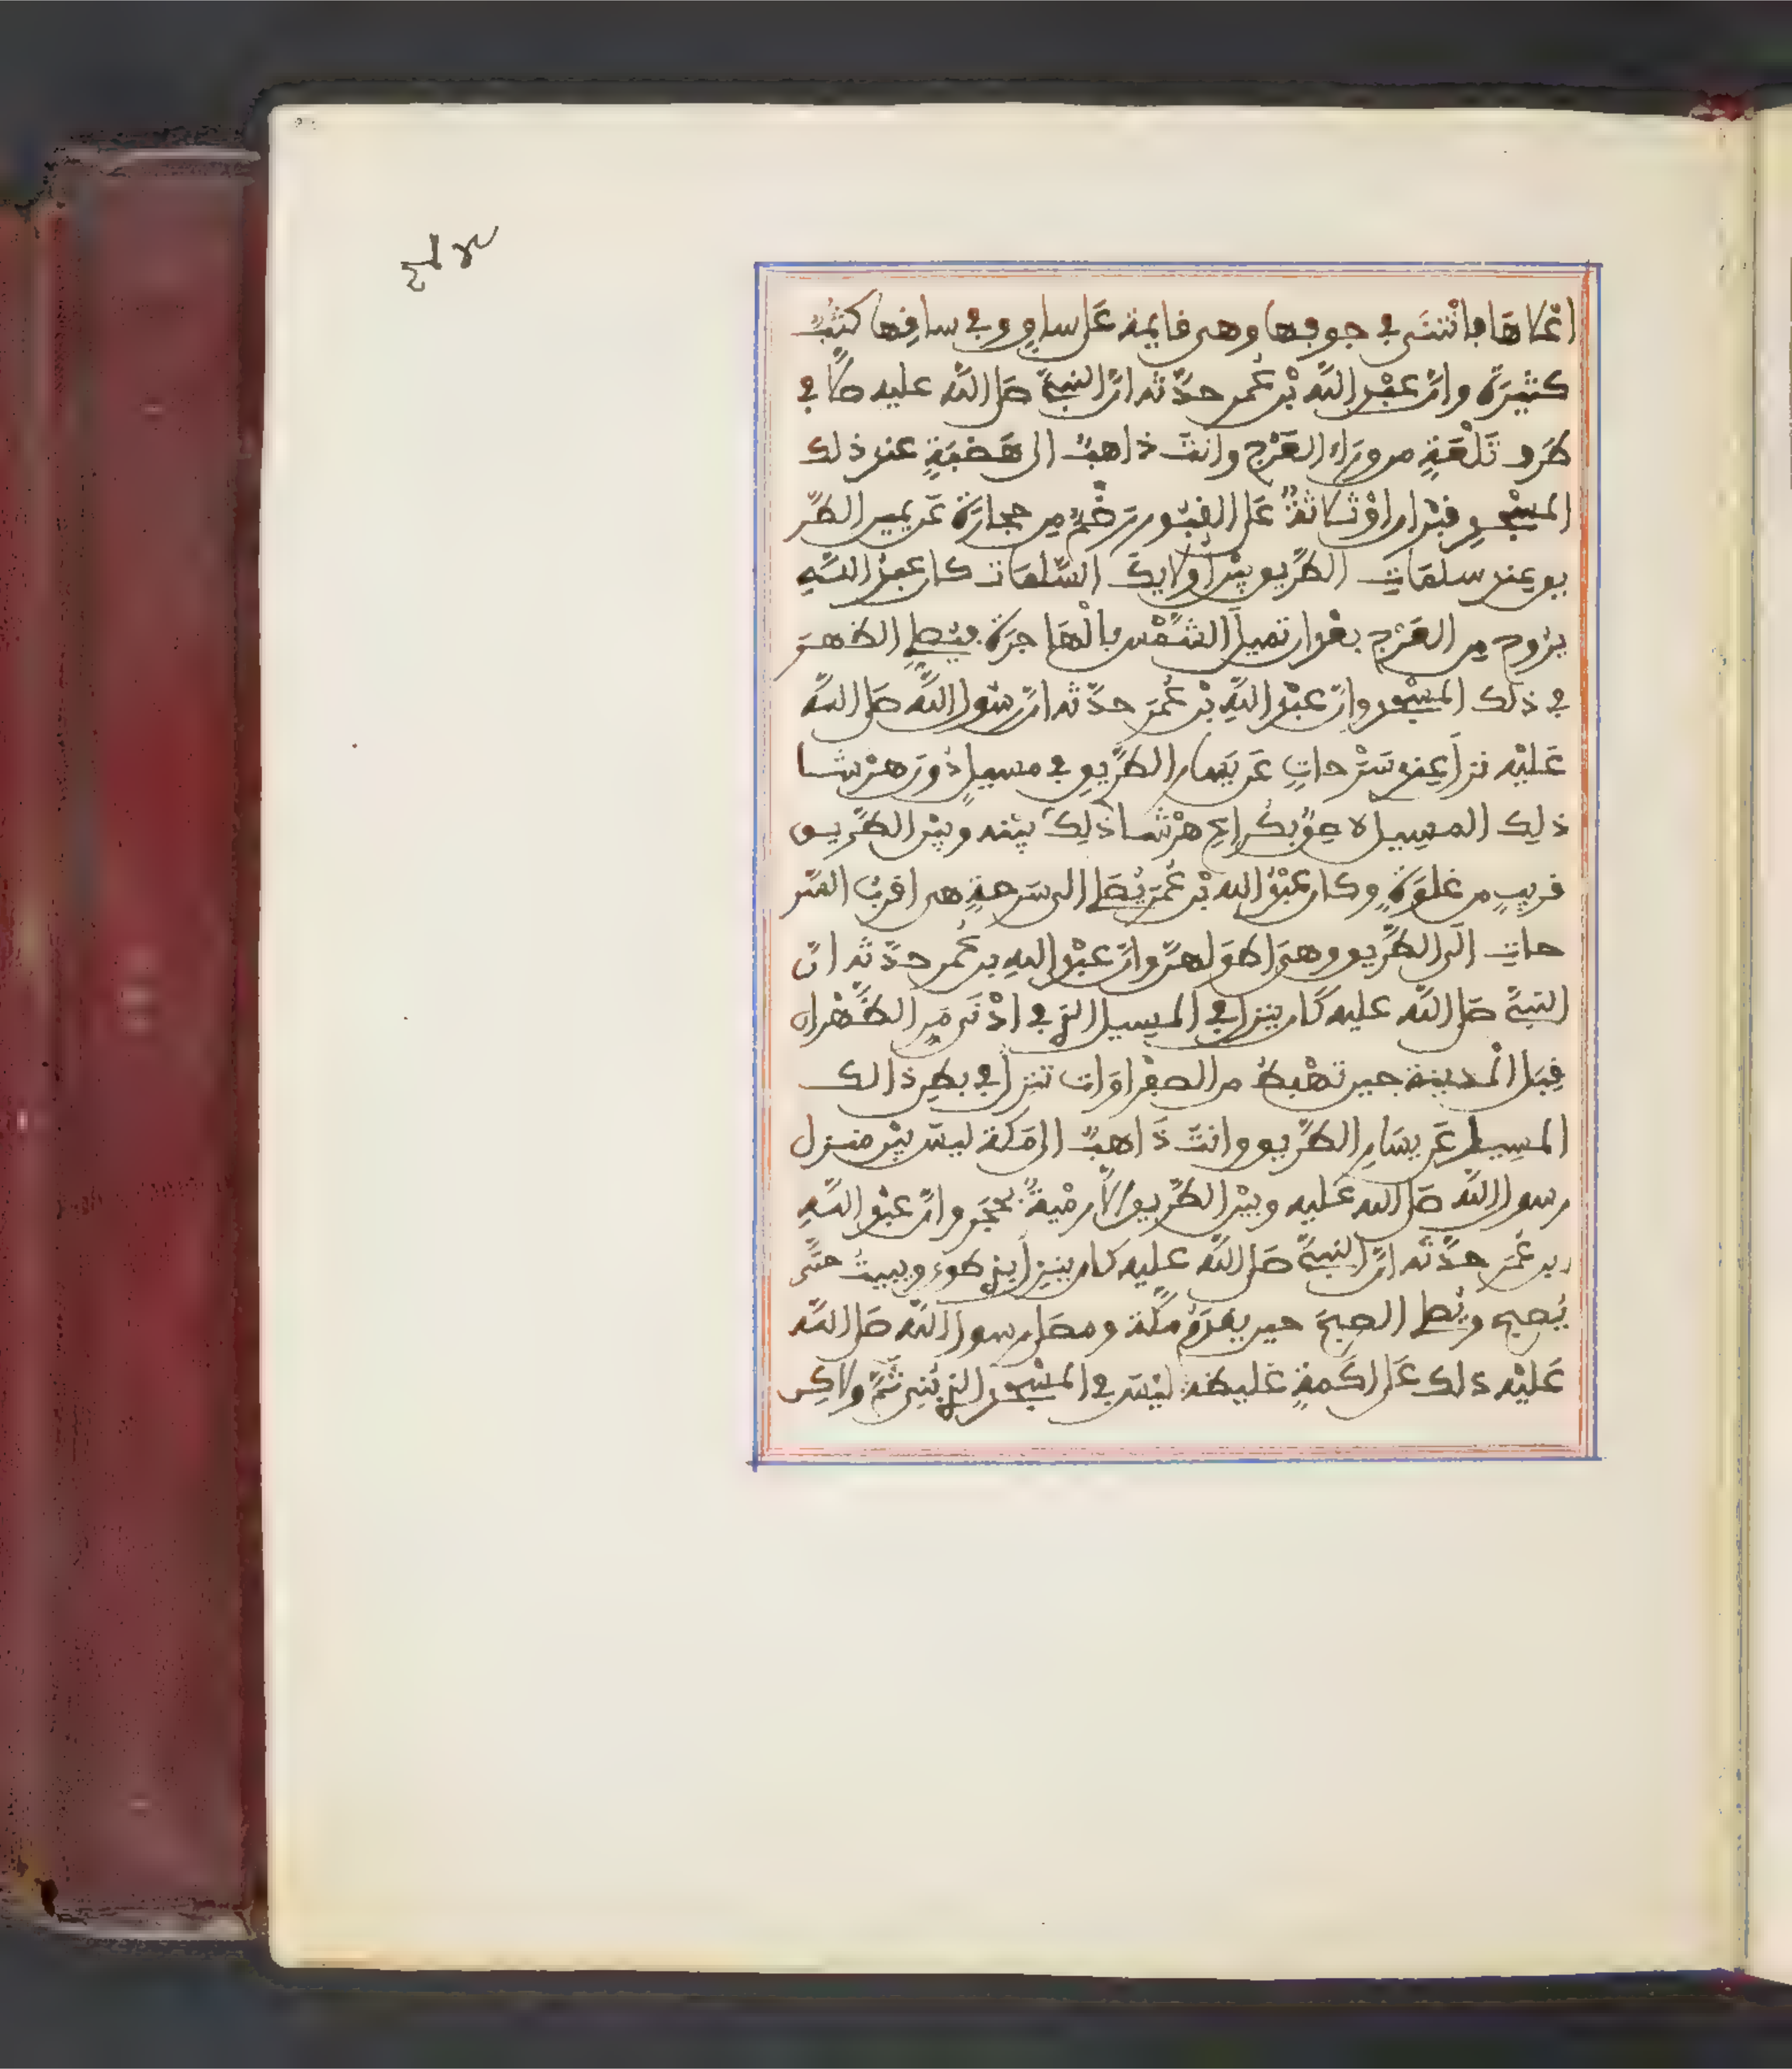 اعْلَاهَا فانْثَنَى في جوفها وهى قايمة عَلى ساوٍ وفي ساقِها كثُبٌ
كثيرَةٌ وانّ عبْد اللَّه بْن عُمر حدَّثه انّ النبىَّ صَلى اللَّه عليه صلَّى في
طَرف تَلْعَةٍ من ورَاء العَرْج وانتَ ذاهبٌ الى هَضبَةٍ عند ذلك
المسْجدِ قبْران اوْ ثلاثةٌ عَلى القبُور رَضْمٌ مِن حجارَة عَن يمين الطَّر
يق عِند سلمَاتِ الطَّريق بيْن أولايك السَّلمَات كان عبدُ اللَّهِ
يرُوح مِن العَرْج بعْدَ ان تميل الشمْس بالْهَاجرَة فيُصلى الظهر
في ذلك المسْجد وانّ عبْدَ اللَّهِ بْن عُمَر حدَّثه انّ رسُول اللَّه صَلى اللَّه
عَليْه نزل عِند سَرْحاتٍ عَن يَسار الطَّريق في مسيلٍ دُون هرْشا
ذلِك المسِيل لاصِقٌ بكراعِ هرْشا ذلِك بيْنه وبيْن الطَّريق
قريبٍ من غلوَةٍ وكان عبْدُ الله بْن عُمَر يُصَلى الى سَرحةٍ هى اقربُ السَّر
حاتِ الَى الطَّريق وهىَ اطوَلهنّ وانّ عبْدَ اللهِ بن عُمر حدَّثه انّ
النبىَّ صَلى اللَّه عليه كَان ينزل في المسِيل الذي في ادْنَى مَرِّ الظَّهْران
قِبَل الْمدينة حين تهْبط من الصفْراوَات تنزل في بطنِ ذالك
المسِيل عَن يسَارِ الطَّريق وانتَ ذَاهبٌ الى مَكة ليسَ بيْن منزل
رسول اللَّه صَلى الله عَليه وبيْن الطَّريق الَّا رمْيةٌ بحَجَر وانّ عبْد اللَّهِ
بن عُمَر حدَّثه انّ النبىَّ صَلى اللَّه عليه كان ينزل بذي طوى ويبيتُ حتَّى
يُصبح ويُصلى الصبحَ حين يقدَمُ مكَّة ومصَلى رسول اللَّه صَلى اللَّه
عَليْه ذلك عَلى اكَمةٍ غليظة ليْسَ في المسْجد الذي بُنِى ثَمَّ ولاكِن